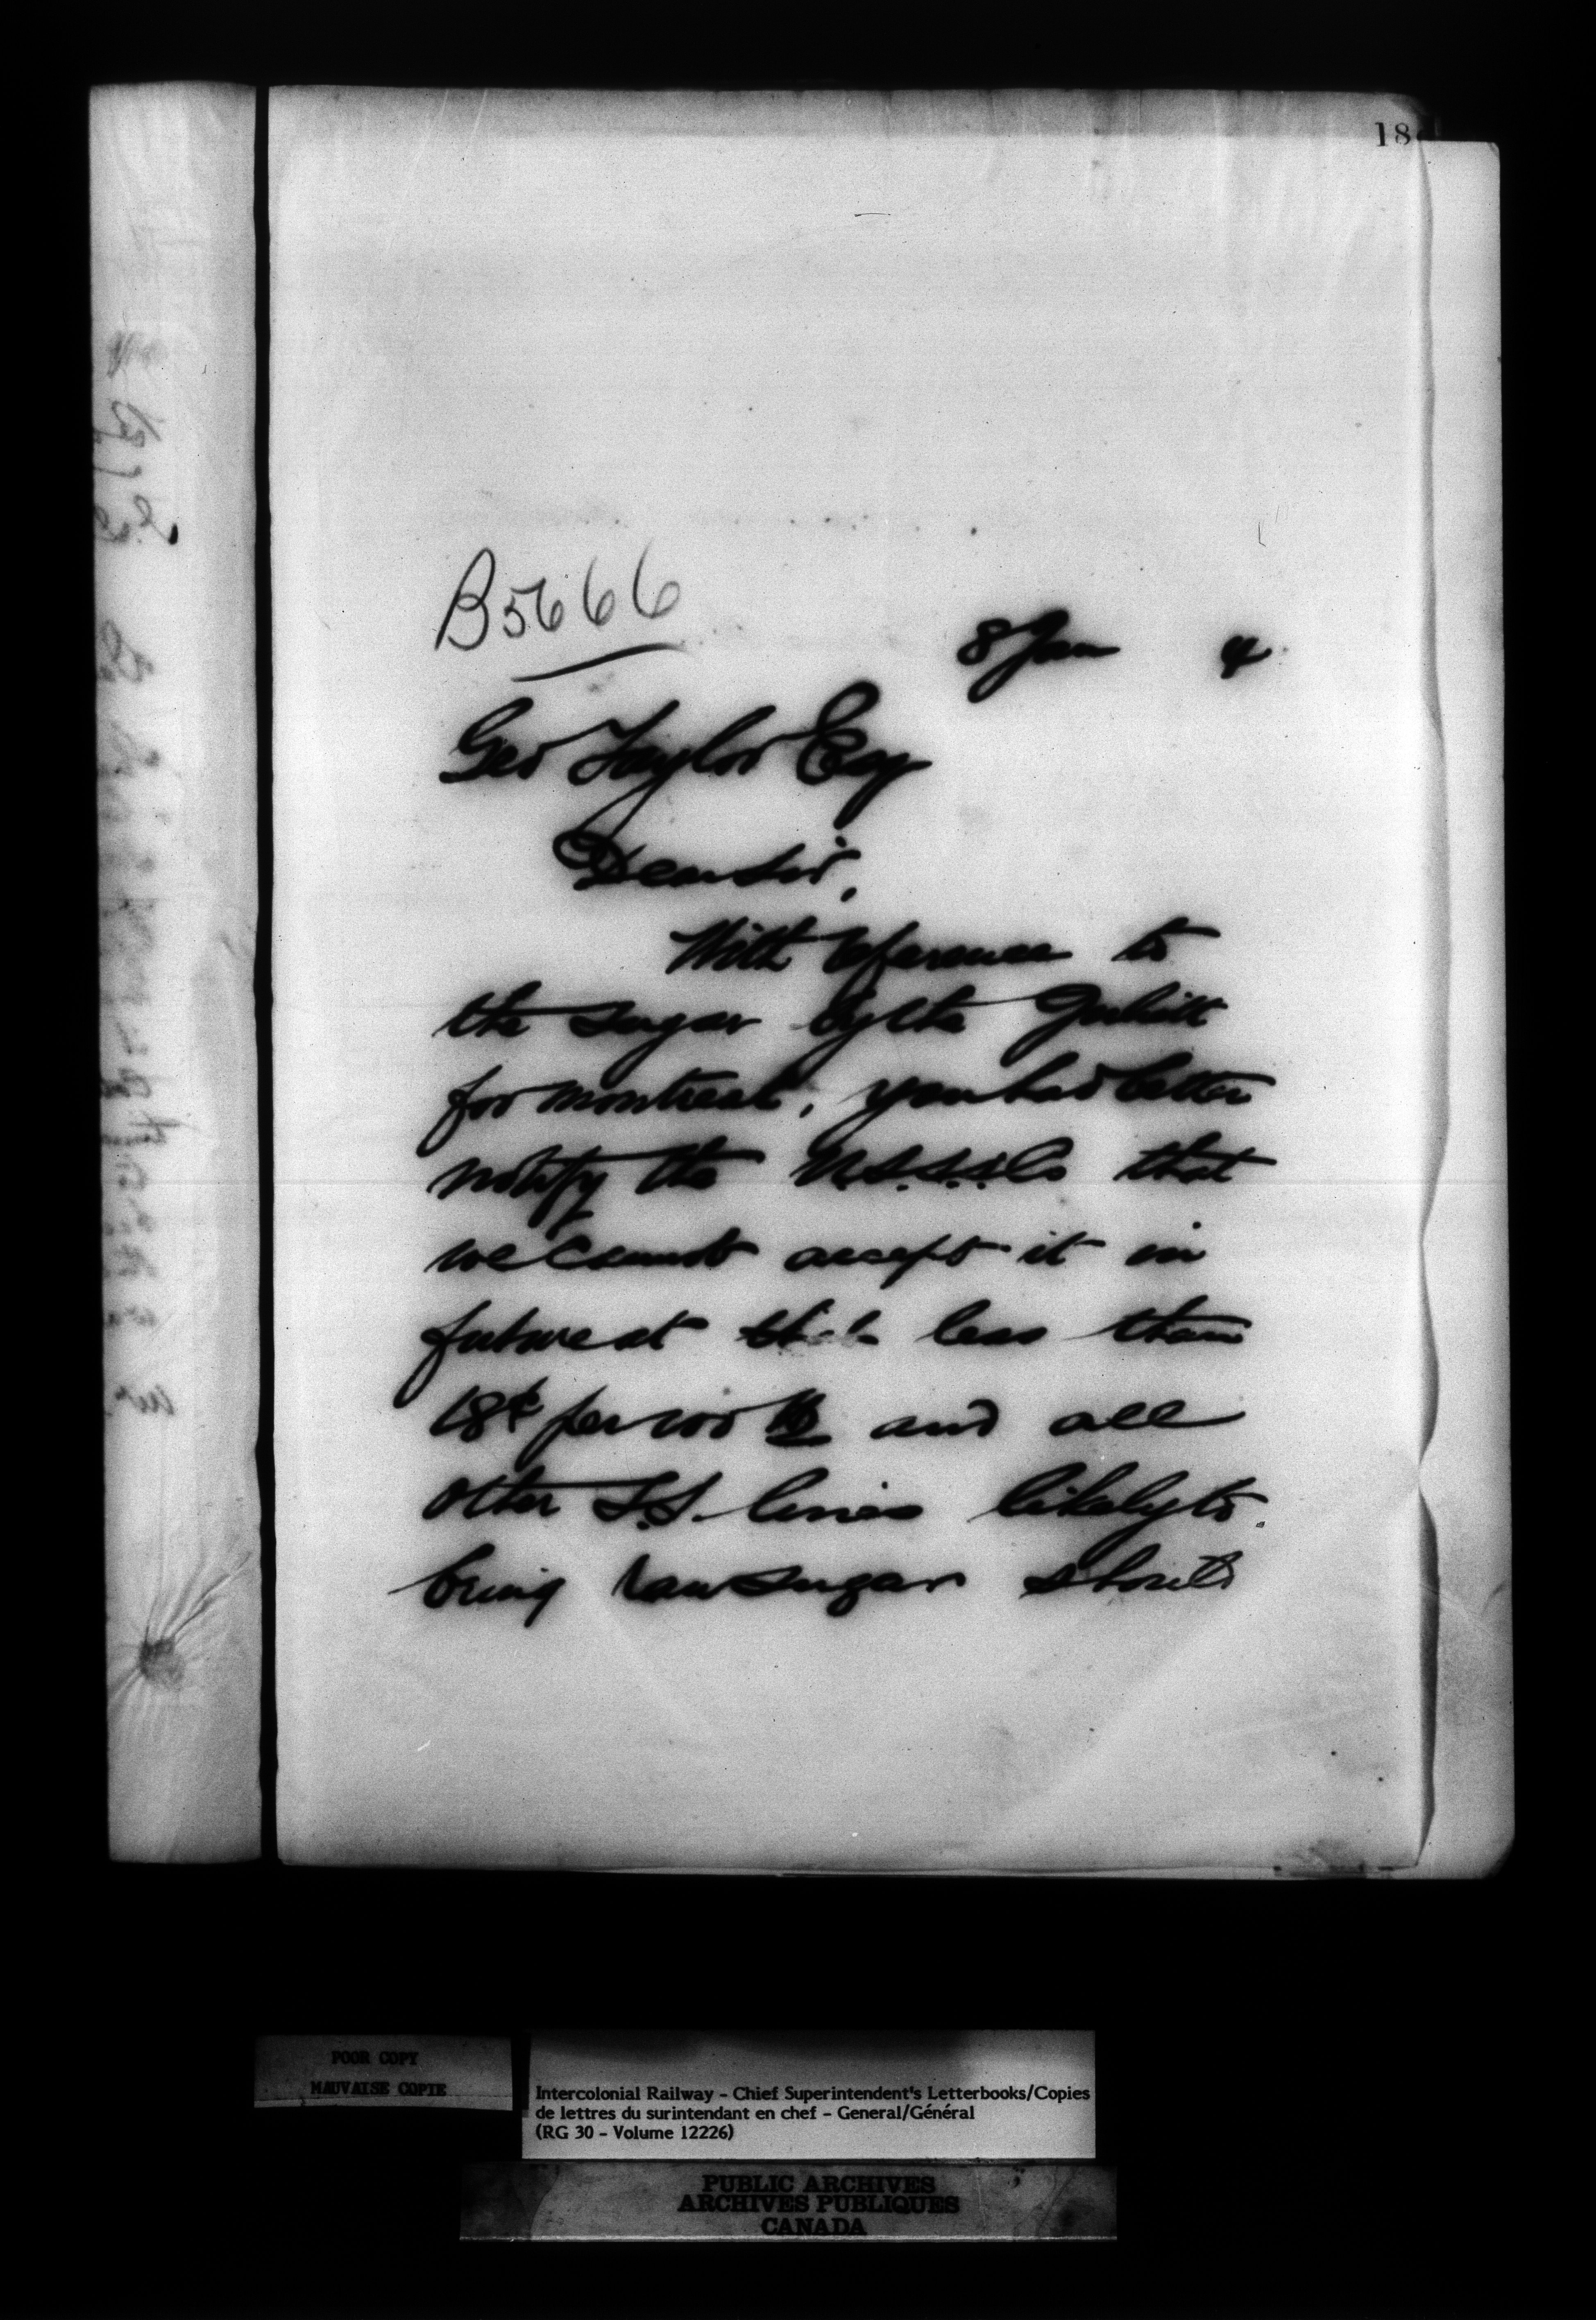 18
B5666
8 Jan 4
Geo Taylor Esq
Dear Sir,
With reference to
the sugar by the
for Montreal, you had better
notify the N.S.S.S. Co that
we cannot accept it in
future at less than
18¢ per 100 lb and all
other S.S. lines likely to
bring raw sugar should
POOR COPY
MAUVAISE COPIE
Intercolonial Railway - Chief Superintendent's Letterbooks/Copies
de lettres du surintendant en chef - General/Général
(RG 30 - Volume 12226)
PUBLIC ARCHIVES
ARCHIVES PUBLIQUES
CANADA